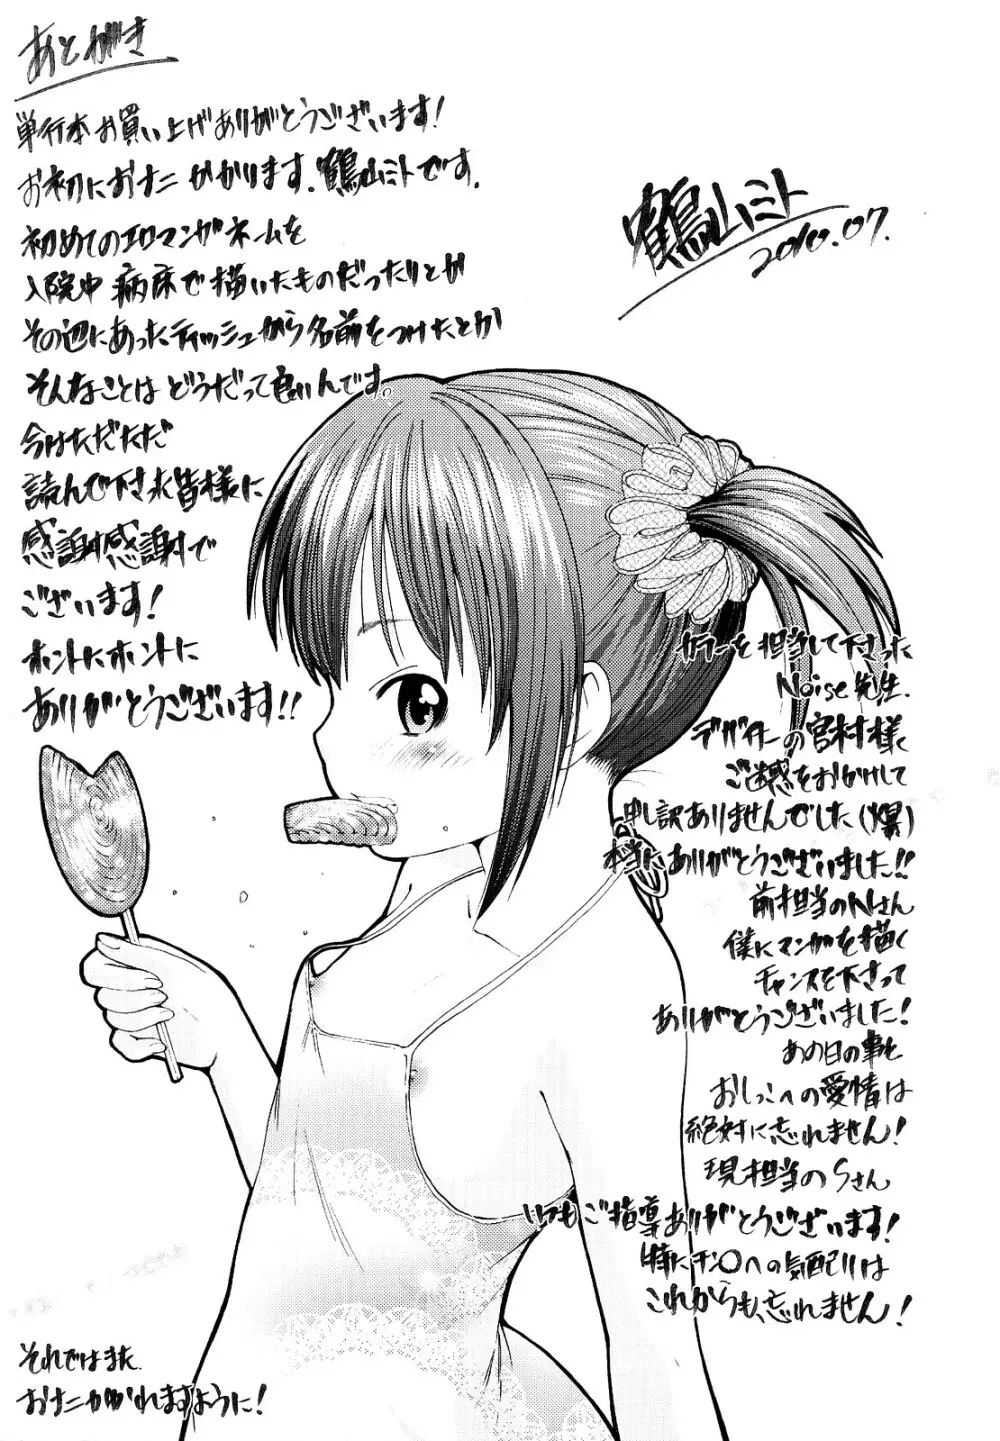 あとがき
単行本お買い上げありがとうございます！
お初におナニかかります。鶴山ミトです。
初めてのエロマンガネームを
入院中病床で描いたものだったりとか
その辺にあったティッシュから名前をつけたとか
そんなことはどうだって良いんです。
今はただただ
読んで下さる皆様に
感謝感謝で
ございます！
ホントにホントに
ありがとうございます！！
鶴山ミト
2010.07.
カラーを担当して下さった
Noise先生。
デザイナーの宮村様
ご迷惑をおかけして
申し訳ありませんでした（爆）
本当にありがとうございました！！
前担当のNさん
僕にマンガを描く
チャンスを下さって
ありがとうございました！
あの日の事と
おしっこへの愛情は
絶対に忘れません！
現担当のSさん
いつもご指導ありがとうございます！
特にチン〇への気配りは
これからも忘れません！
それではまた
おナニかかれますように！